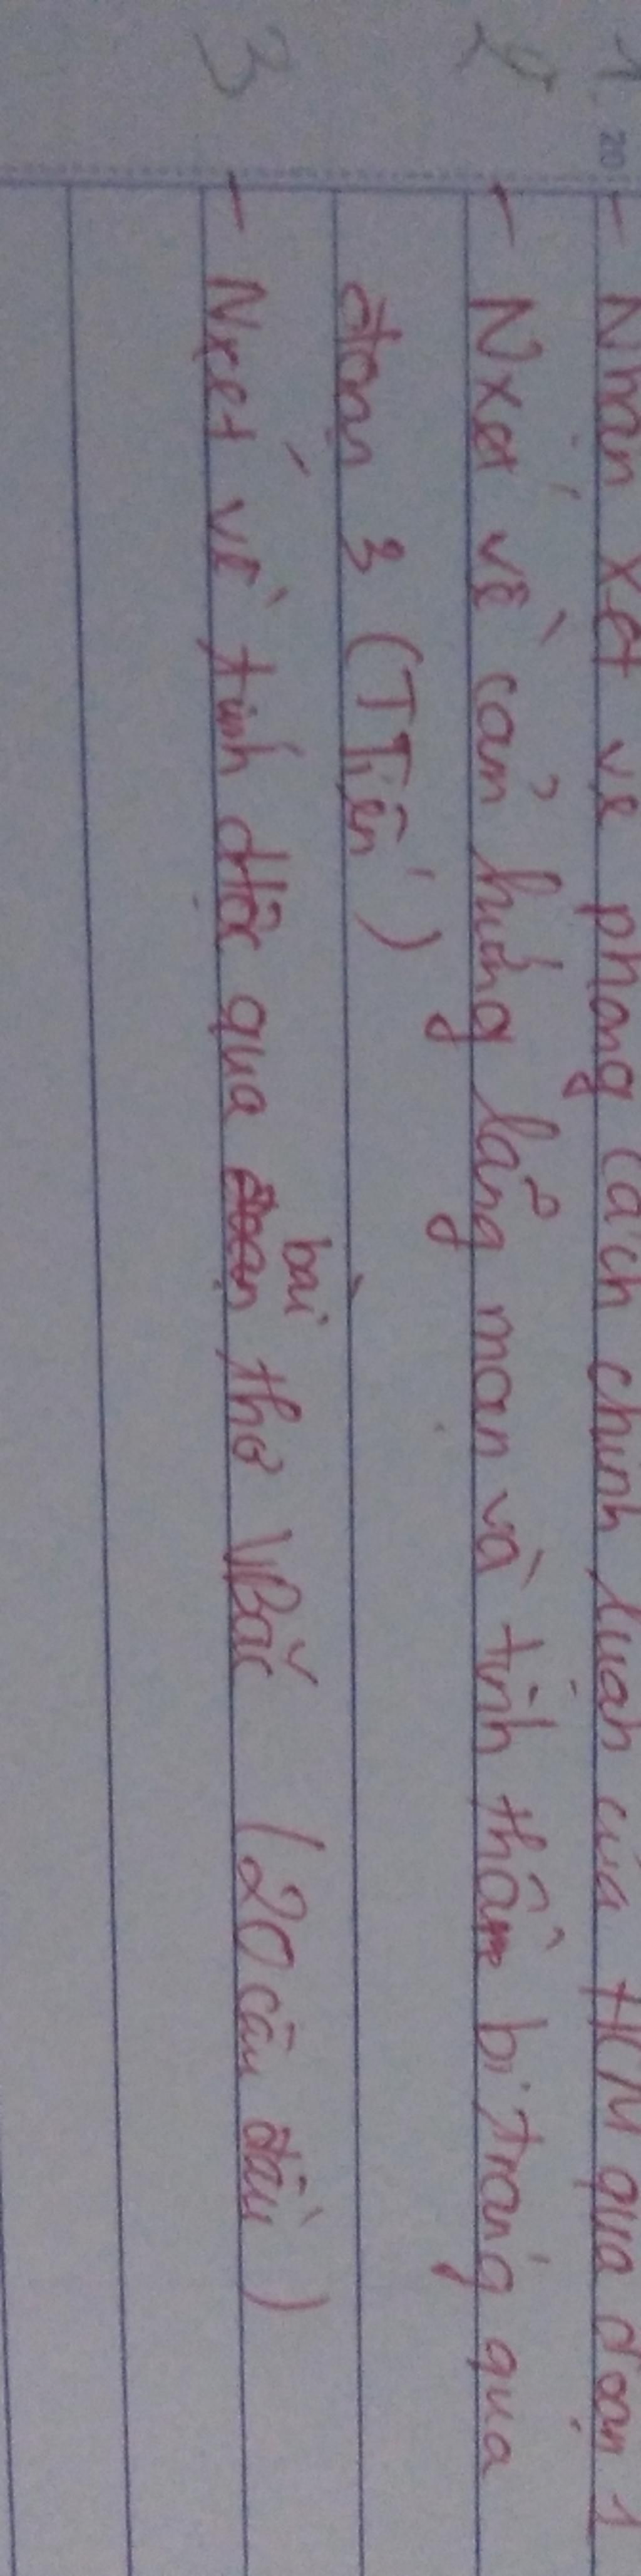 1 - Nhận xét về phong cách chính luận của HCM qua đoạn 1
2 - Nxét về cảm hứng lãng mạn và tính thẩm bi tráng qua
đoạn 3 (TTiến)
3 - Nxét về tính dtộc qua bài thơ VBắc (20 câu đầu)